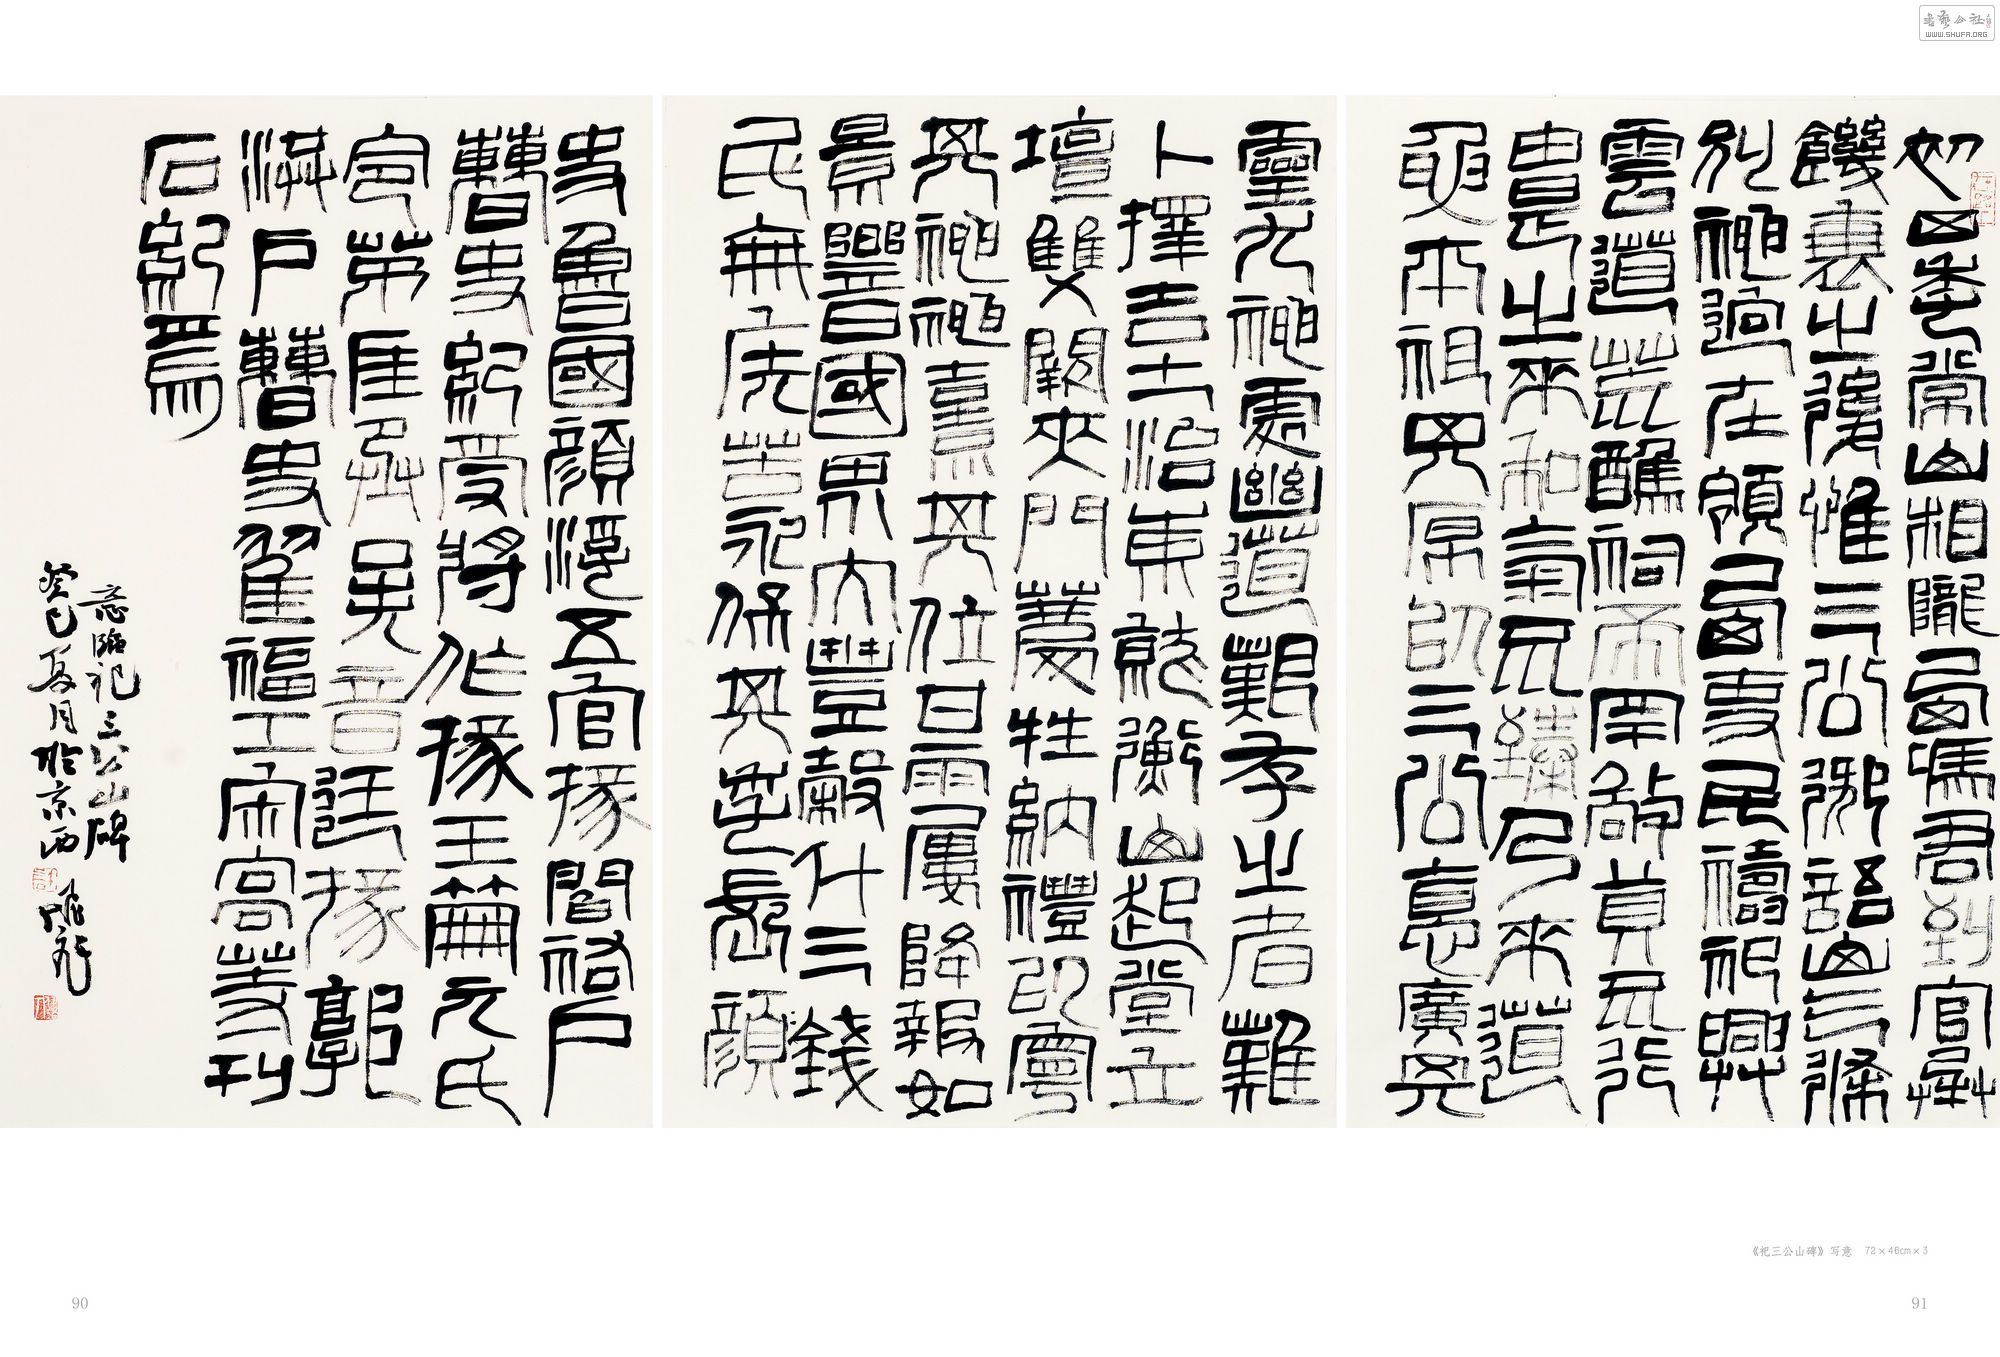 初四年常山相隴西馮君到官承
饑衰之後惟三公御語山三條
別神迥在領西吏民禱祀興
雲道荒醮祠希罕敬奠不行
由是之來和氣不臻乃來道
要本祖其原以三公德廣其
靈尤神處幽道艱存之者難
卜擇吉土治東就衡山起堂立
壇雙闕夾門薦牲納禮以寧
其神神熹其位甘雨屢降報如
景響國界大豐穀什三錢
民無疾苦永保其年長顏
史魯國顏浮五官掾閻祐戶
曹史紀受將作掾王笧元氏
令茅厓丞吳音廷掾郭
洪戶曹史翟福工宋高等刊
石紀焉
意臨祀三公山碑
癸巳夏月於京西
《祀三公山碑》写意 72×46cm×3
90
91
书艺公社
WWW.SHUFA.ORG